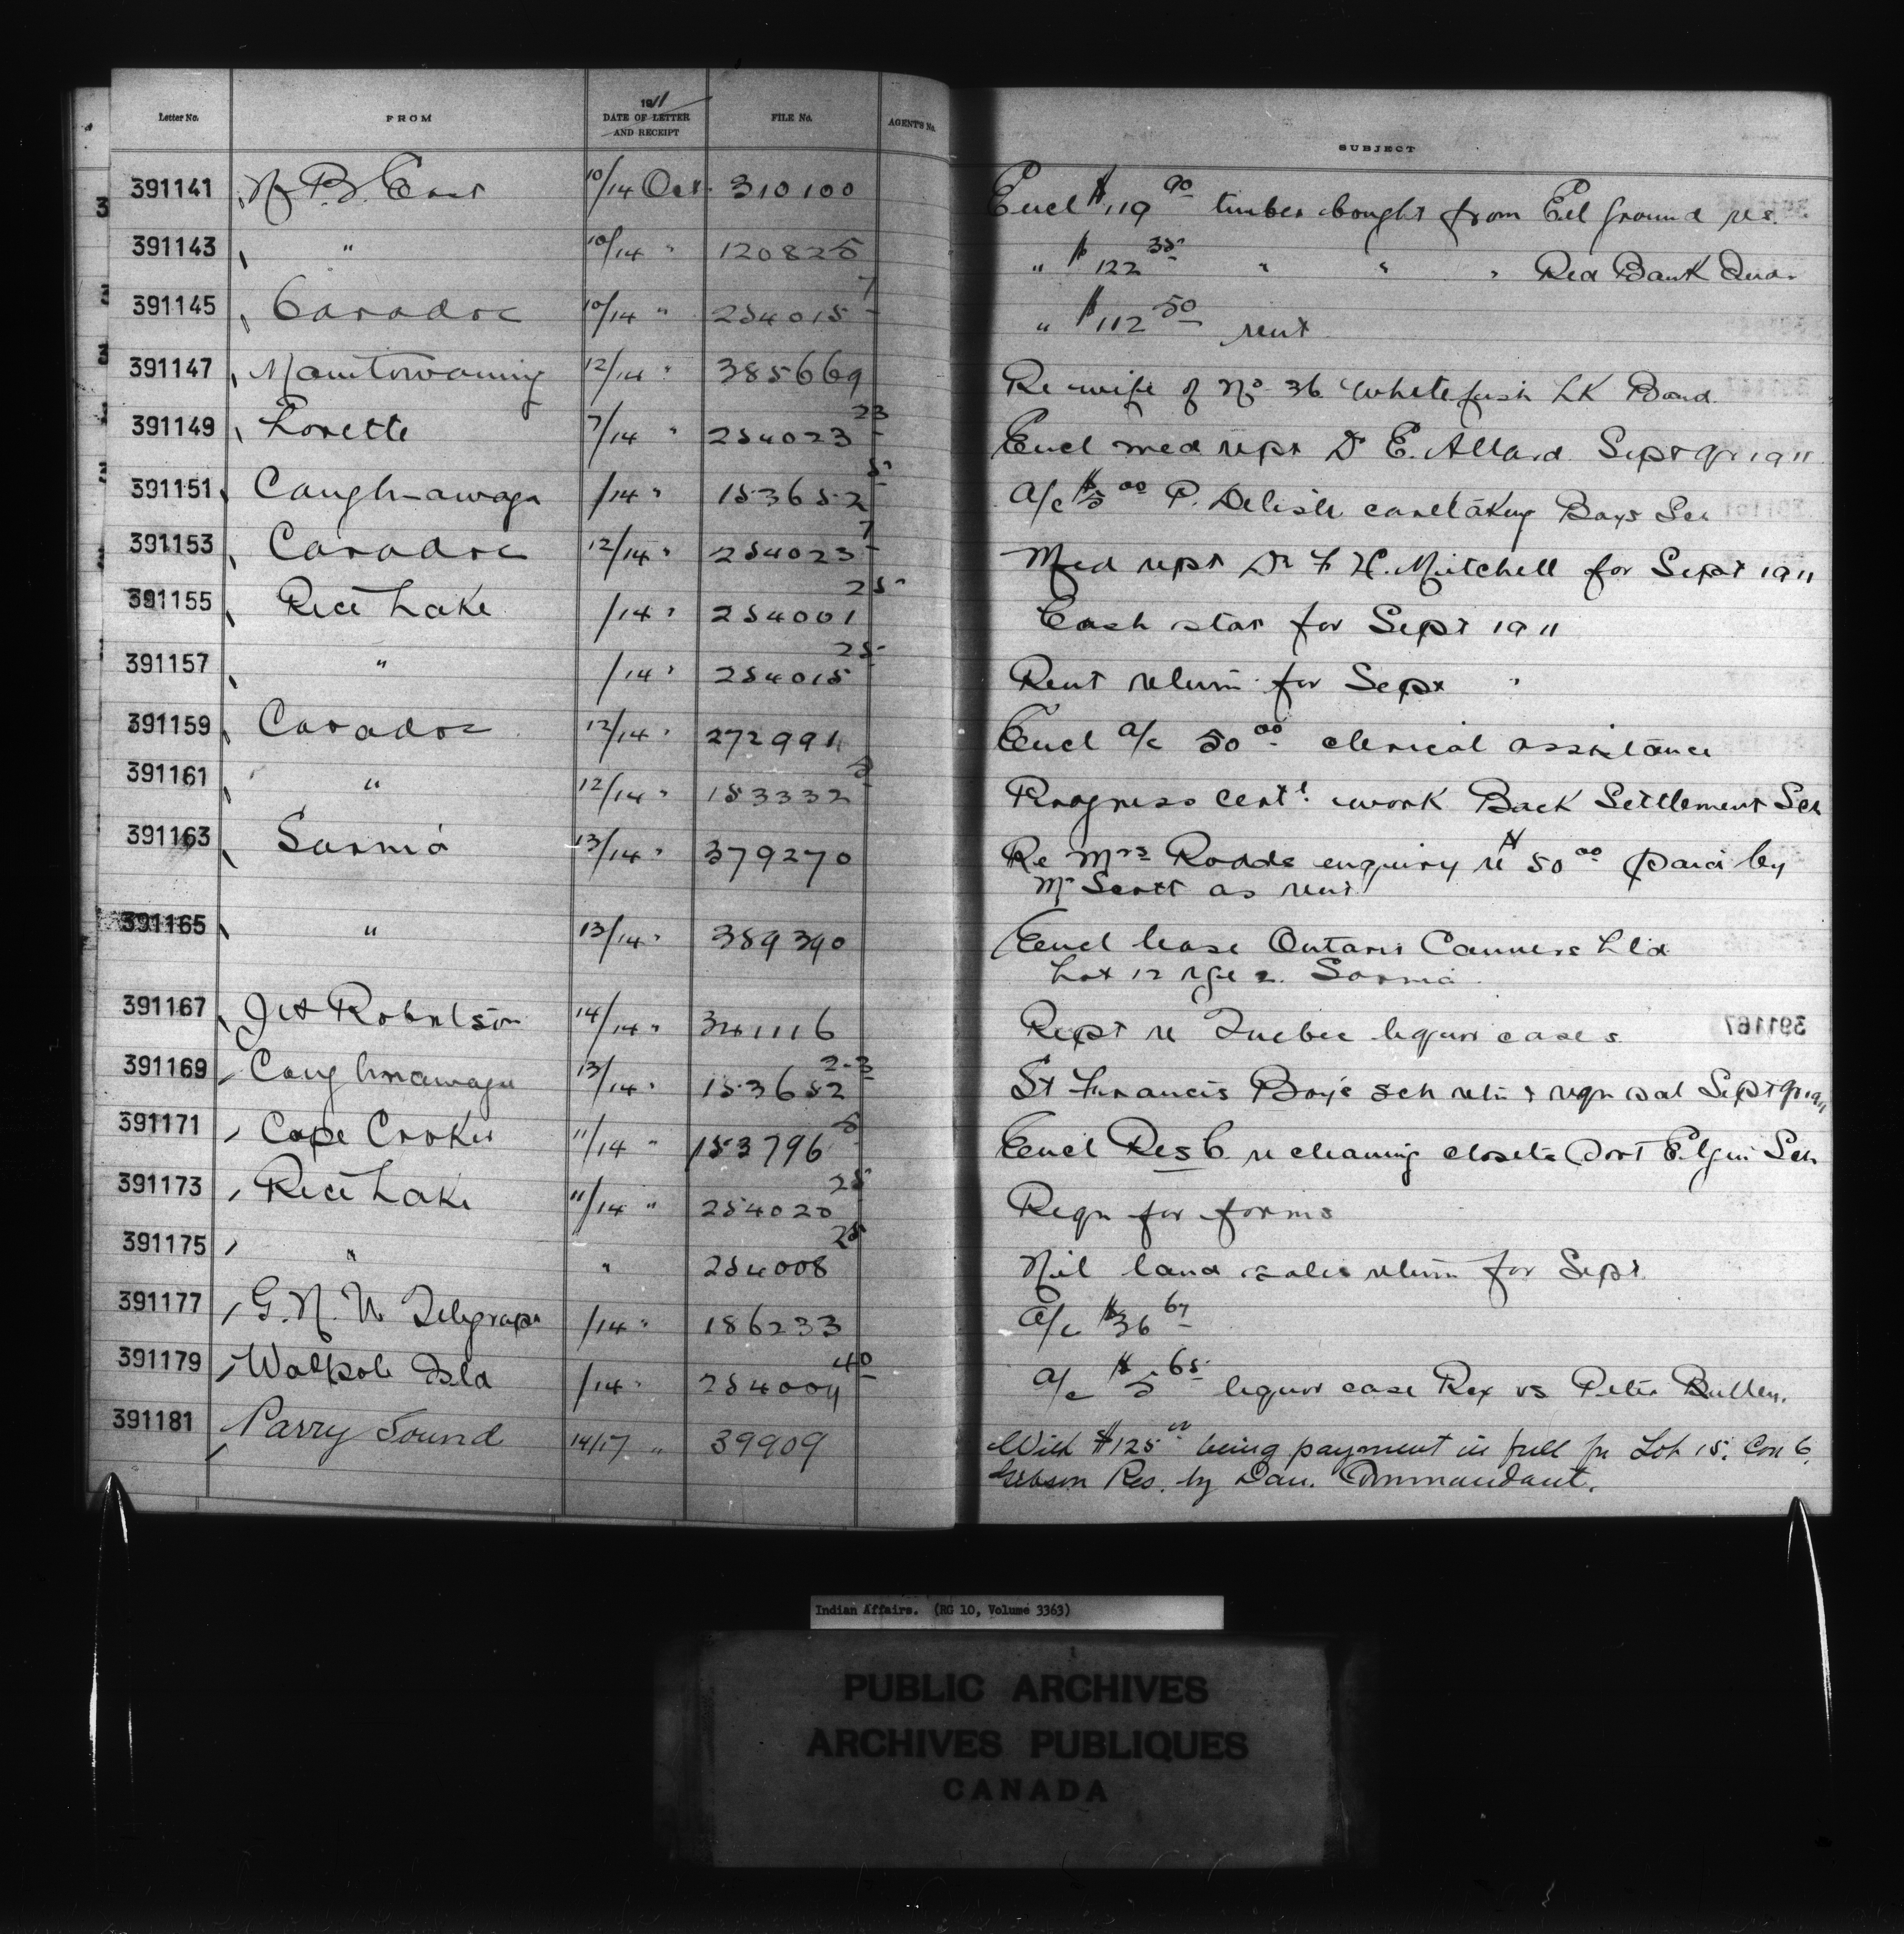 Letter No. FROM 1911 DATE OF LETTER AND RECEIPT FILE No. AGENT'S No. SUBJECT
391141 N. B. East 10/14 Oct. 310100 Encl $119 90 timber bought from Eel Ground res.
391143 " 10/14 " 120825 " $122 35 " " " Red Bank Inds.
391145 Caradoc 10/14 " 254015 7 " $112 50 rent
391147 Manitowaning 12/14 " 385669 Re wife of No 36 Whitefish Lk Band
391149 Lorette 7/14 " 254023 23 Encl med rept Dr E. Allard Sept qr 1911
391151 Caughnawaga /14 " 153652 5 A/c $5 00 P. Delisle caretaking Boys Sch
391153 Caradoc 12/14 " 254023 7 Med rept Dr F H. Mitchell for Sept 1911
391155 Rice Lake /14 " 254001 25 Cash stat for Sept 1911
391157 " /14 " 254015 25 Rent return for Sept "
391159 Caradoc 12/14 " 272991 Encl a/c 50 00 clerical assistance
391161 " 12/14 " 153332 5 Progress cert. work Back Settlement Sch
391163 Sarnia 13/14 " 379270 Re Mrs Rodds enquiry re $50 00 paid by
Mr Scott as rent
391165 " 13/14 " 389390 Encl lease Ontario Canners Ltd
Lot 12 rge 2. Sarnia
391167 J A Robertson 14/14 " 341116 Rept re Quebec liquor cases 391167
391169 Caughnawaga 13/14 " 153652 2-3 St Francis Boys sch retn & reqn sal Sept qr 1911
391171 Cape Croker 11/14 " 153796 8 Encl Res C. re cleaning closets Port Elgin Sch
391173 Rice Lake 11/14 " 254020 25 Reqn for forms
391175 " " 254008 25 Nil land sales return for Sept
391177 G. N. W Telegraph /14 " 186233 A/c $36 67
391179 Walpole Isld /14 " 254004 40 A/c $5 65 liquor case Rex vs Peter Bullen.
391181 Parry Sound 14/17 " 39909 With $125 00 being payment in full for Lot 15. Con 6.
Gibson Res. by Dan. Commandant.
Indian Affairs. (RG 10, Volume 3363)
PUBLIC ARCHIVES
ARCHIVES PUBLIQUES
CANADA